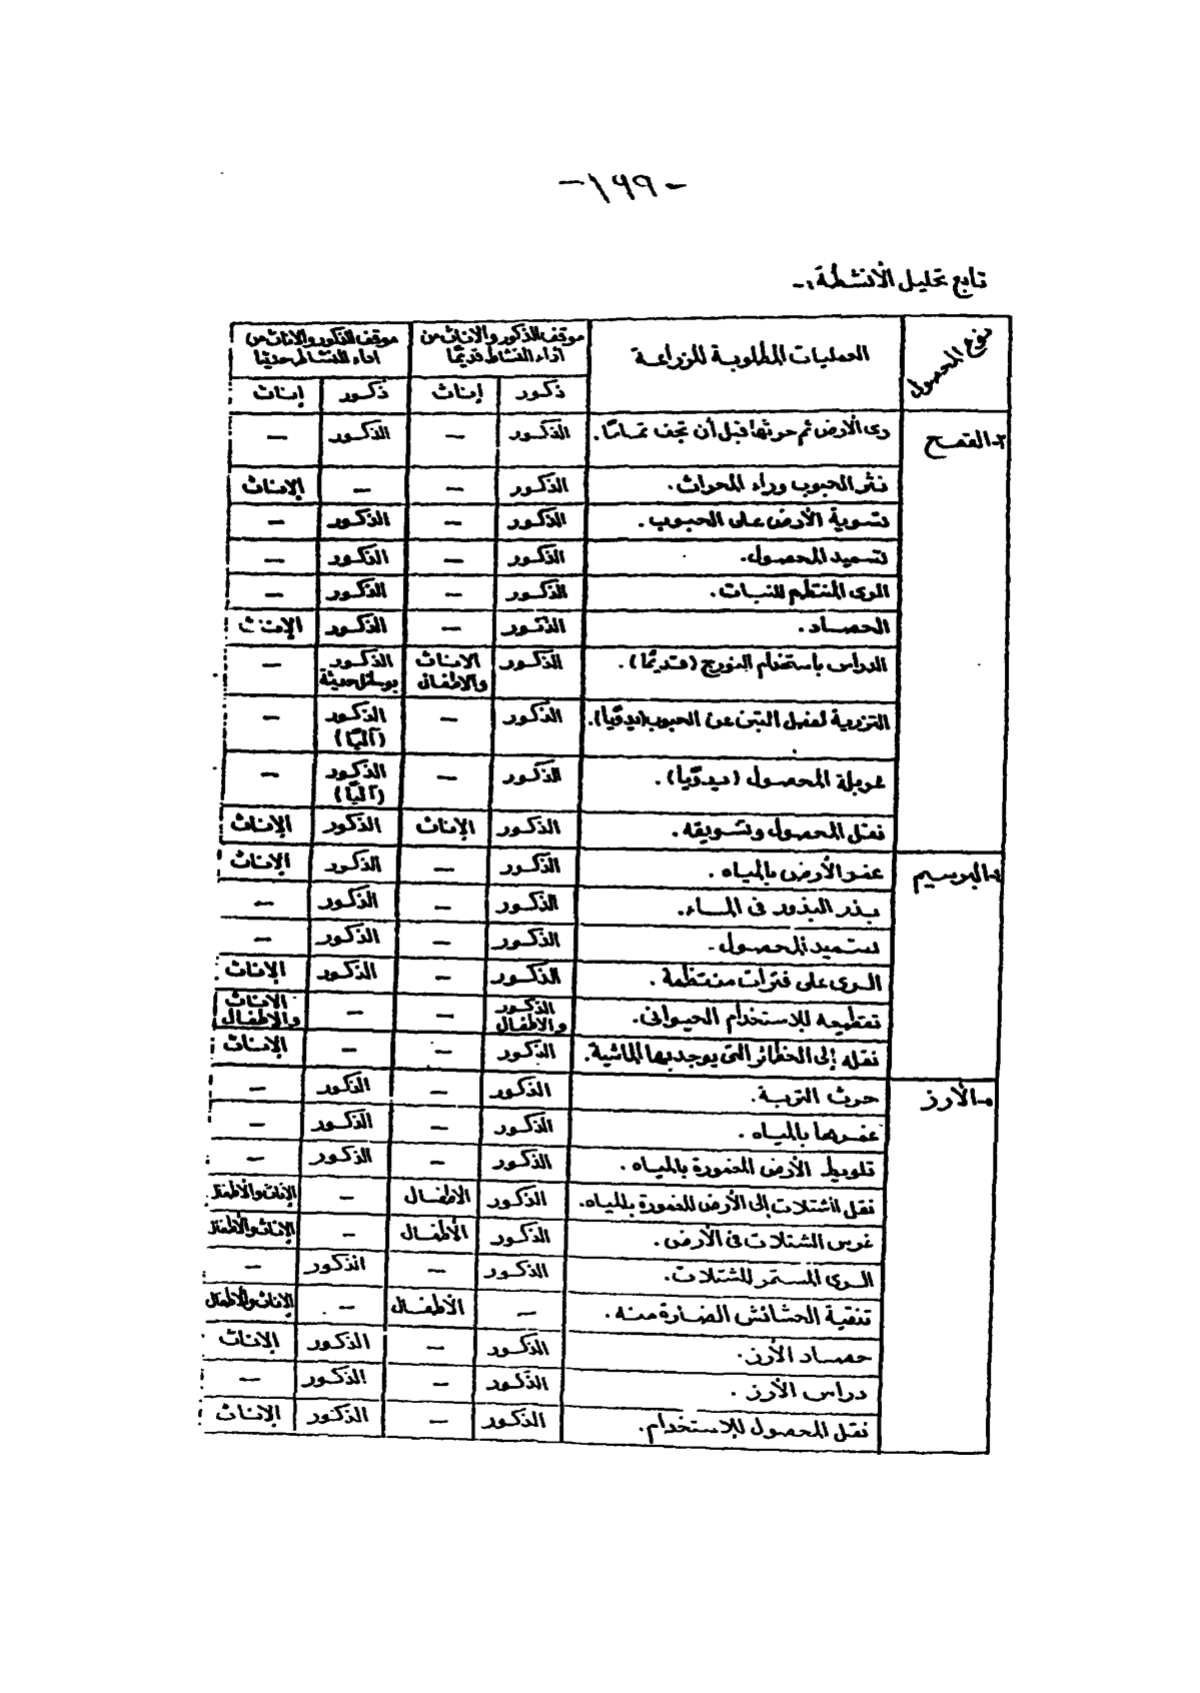 -١٩٩-
تابع تحليل الأنشطة :-
نوع المحصول | العمليات المطلوبة للزراعة | موقف الذكور والاناث من اداء النشاط قديمًا | موقف الذكور والاناث من اداء النشاط حديثا
ذكور | إناث | ذكور | إناث
٣- القمح | رى الأرض ثم حرثها قبل أن تجف تمامًا. | الذكور | — | الذكور | —
نثر الحبوب وراء المحراث. | الذكور | — | — | الإناث
تسوية الأرض على الحبوب. | الذكور | — | الذكور | —
تسميد المحصول. | الذكور | — | الذكور | —
الرى المنتظم للنبات. | الذكور | — | الذكور | —
الحصاد. | الذكور | — | الذكور | الإناث
الدراس باستخدام النورج (قديمًا). | الذكور | الاناث والاطفال | الذكور بوسائل حديثة | —
التزرية لفصل التبن عن الحبوب (يدويًا). | الذكور | — | الذكور (آليًا) | —
غربلة المحصول (يدويًا). | الذكور | — | الذكور (آليًا) | —
نقل المحصول وتسويقه. | الذكور | الإناث | الذكور | الإناث
البرسيم | غمر الأرض بالمياه. | الذكور | — | الذكور | الإناث
بذر البذور فى الماء. | الذكور | — | الذكور | —
تسميد المحصول. | الذكور | — | الذكور | —
الرى على فترات منتظمة. | الذكور | — | الذكور | الإناث
تقطيعه للإستخدام الحيوانى. | الذكور والاطفال | — | — | الاناث والاطفال
نقله إلى الحظائر التى يوجد بها الماشية. | الذكور | — | — | الإناث
الأرز | حرث التربة. | الذكور | — | الذكور | —
غمرها بالمياه. | الذكور | — | الذكور | —
تلويط الأرض المغمورة بالمياه. | الذكور | — | الذكور | —
نقل الشتلات إلى الأرض المغمورة بالمياه. | الذكور | الاطفال | — | الإناث والأطفال
غرس الشتلات فى الأرض. | الذكور | الأطفال | — | الإناث والأطفال
الرى المستمر للشتلات. | الذكور | — | الذكور | —
تنقية الحشائش الضارة منه. | — | الأطفال | — | الإناث والأطفال
حصاد الأرز. | الذكور | — | الذكور | الإناث
دراس الأرز. | الذكور | — | الذكور | —
نقل المحصول للإستخدام. | الذكور | — | الذكور | الإناث